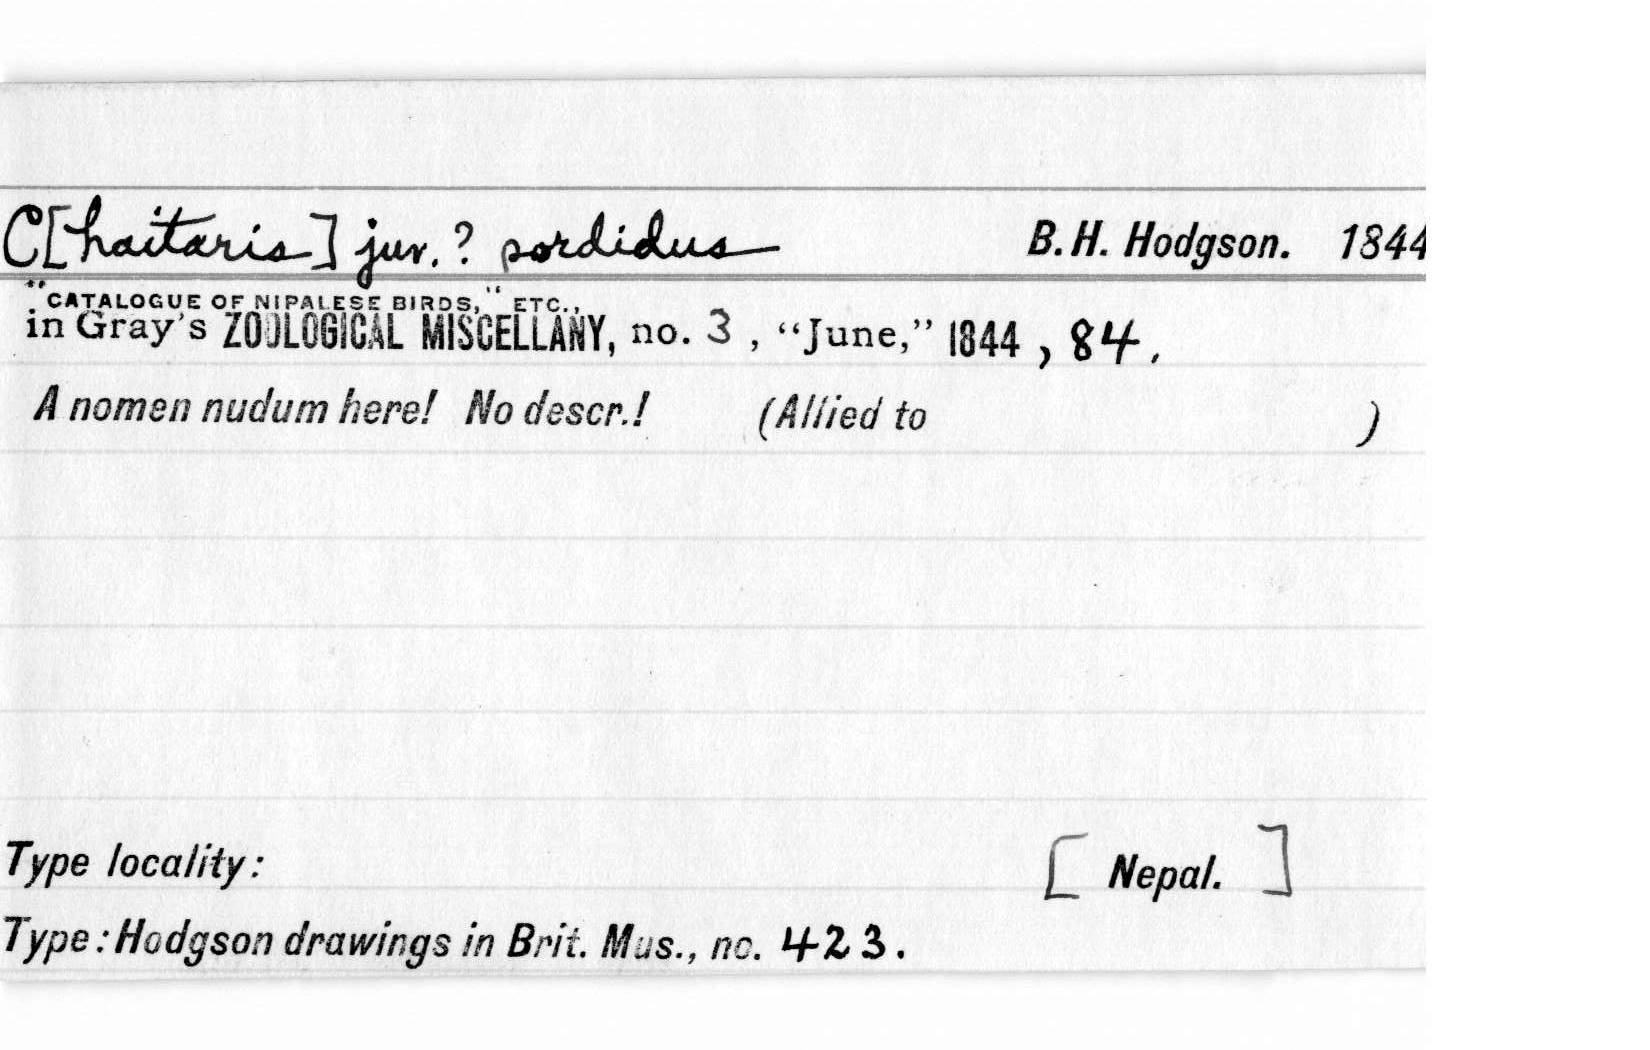 C[haitaris] juv.? sordidus B.H. Hodgson. 1844
"CATALOGUE OF NIPALESE BIRDS," ETC.,
in Gray's ZOOLOGICAL MISCELLANY, no. 3, "June," 1844, 84.
A nomen nudum here! No descr.! (Allied to )
Type locality: [Nepal.]
Type: Hodgson drawings in Brit. Mus., no. 423.